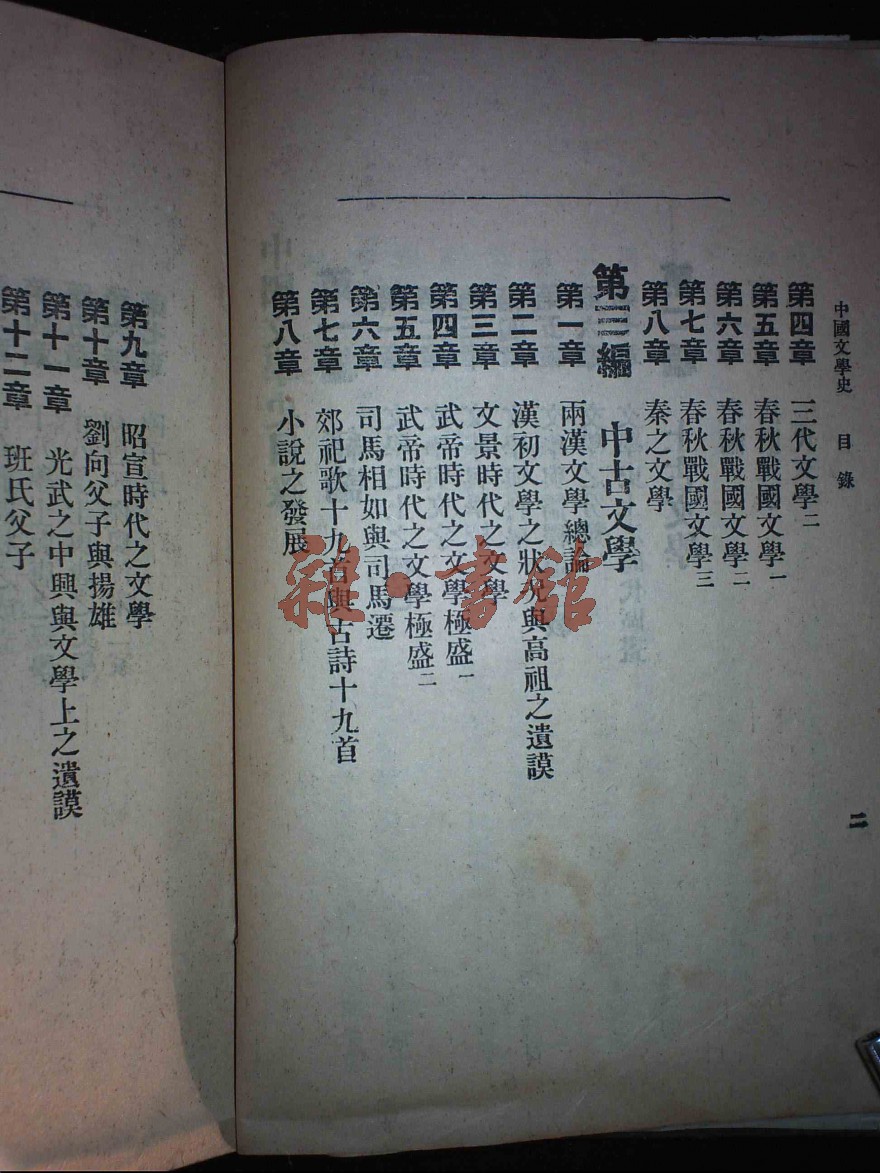 中國文學史　目錄　二
第四章　三代文學二
第五章　春秋戰國文學一
第六章　春秋戰國文學二
第七章　春秋戰國文學三
第八章　秦之文學
第三編　中古文學
第一章　兩漢文學總論
第二章　漢初文學之狀況與高祖之遺謨
第三章　文景時代之文學
第四章　武帝時代之文學極盛一
第五章　武帝時代之文學極盛二
第六章　司馬相如與司馬遷
第七章　郊祀歌十九首與古詩十九首
第八章　小說之發展
第九章　昭宣時代之文學
第十章　劉向父子與揚雄
第十一章　光武之中興與文學上之遺謨
第十二章　班氏父子
雜·書館